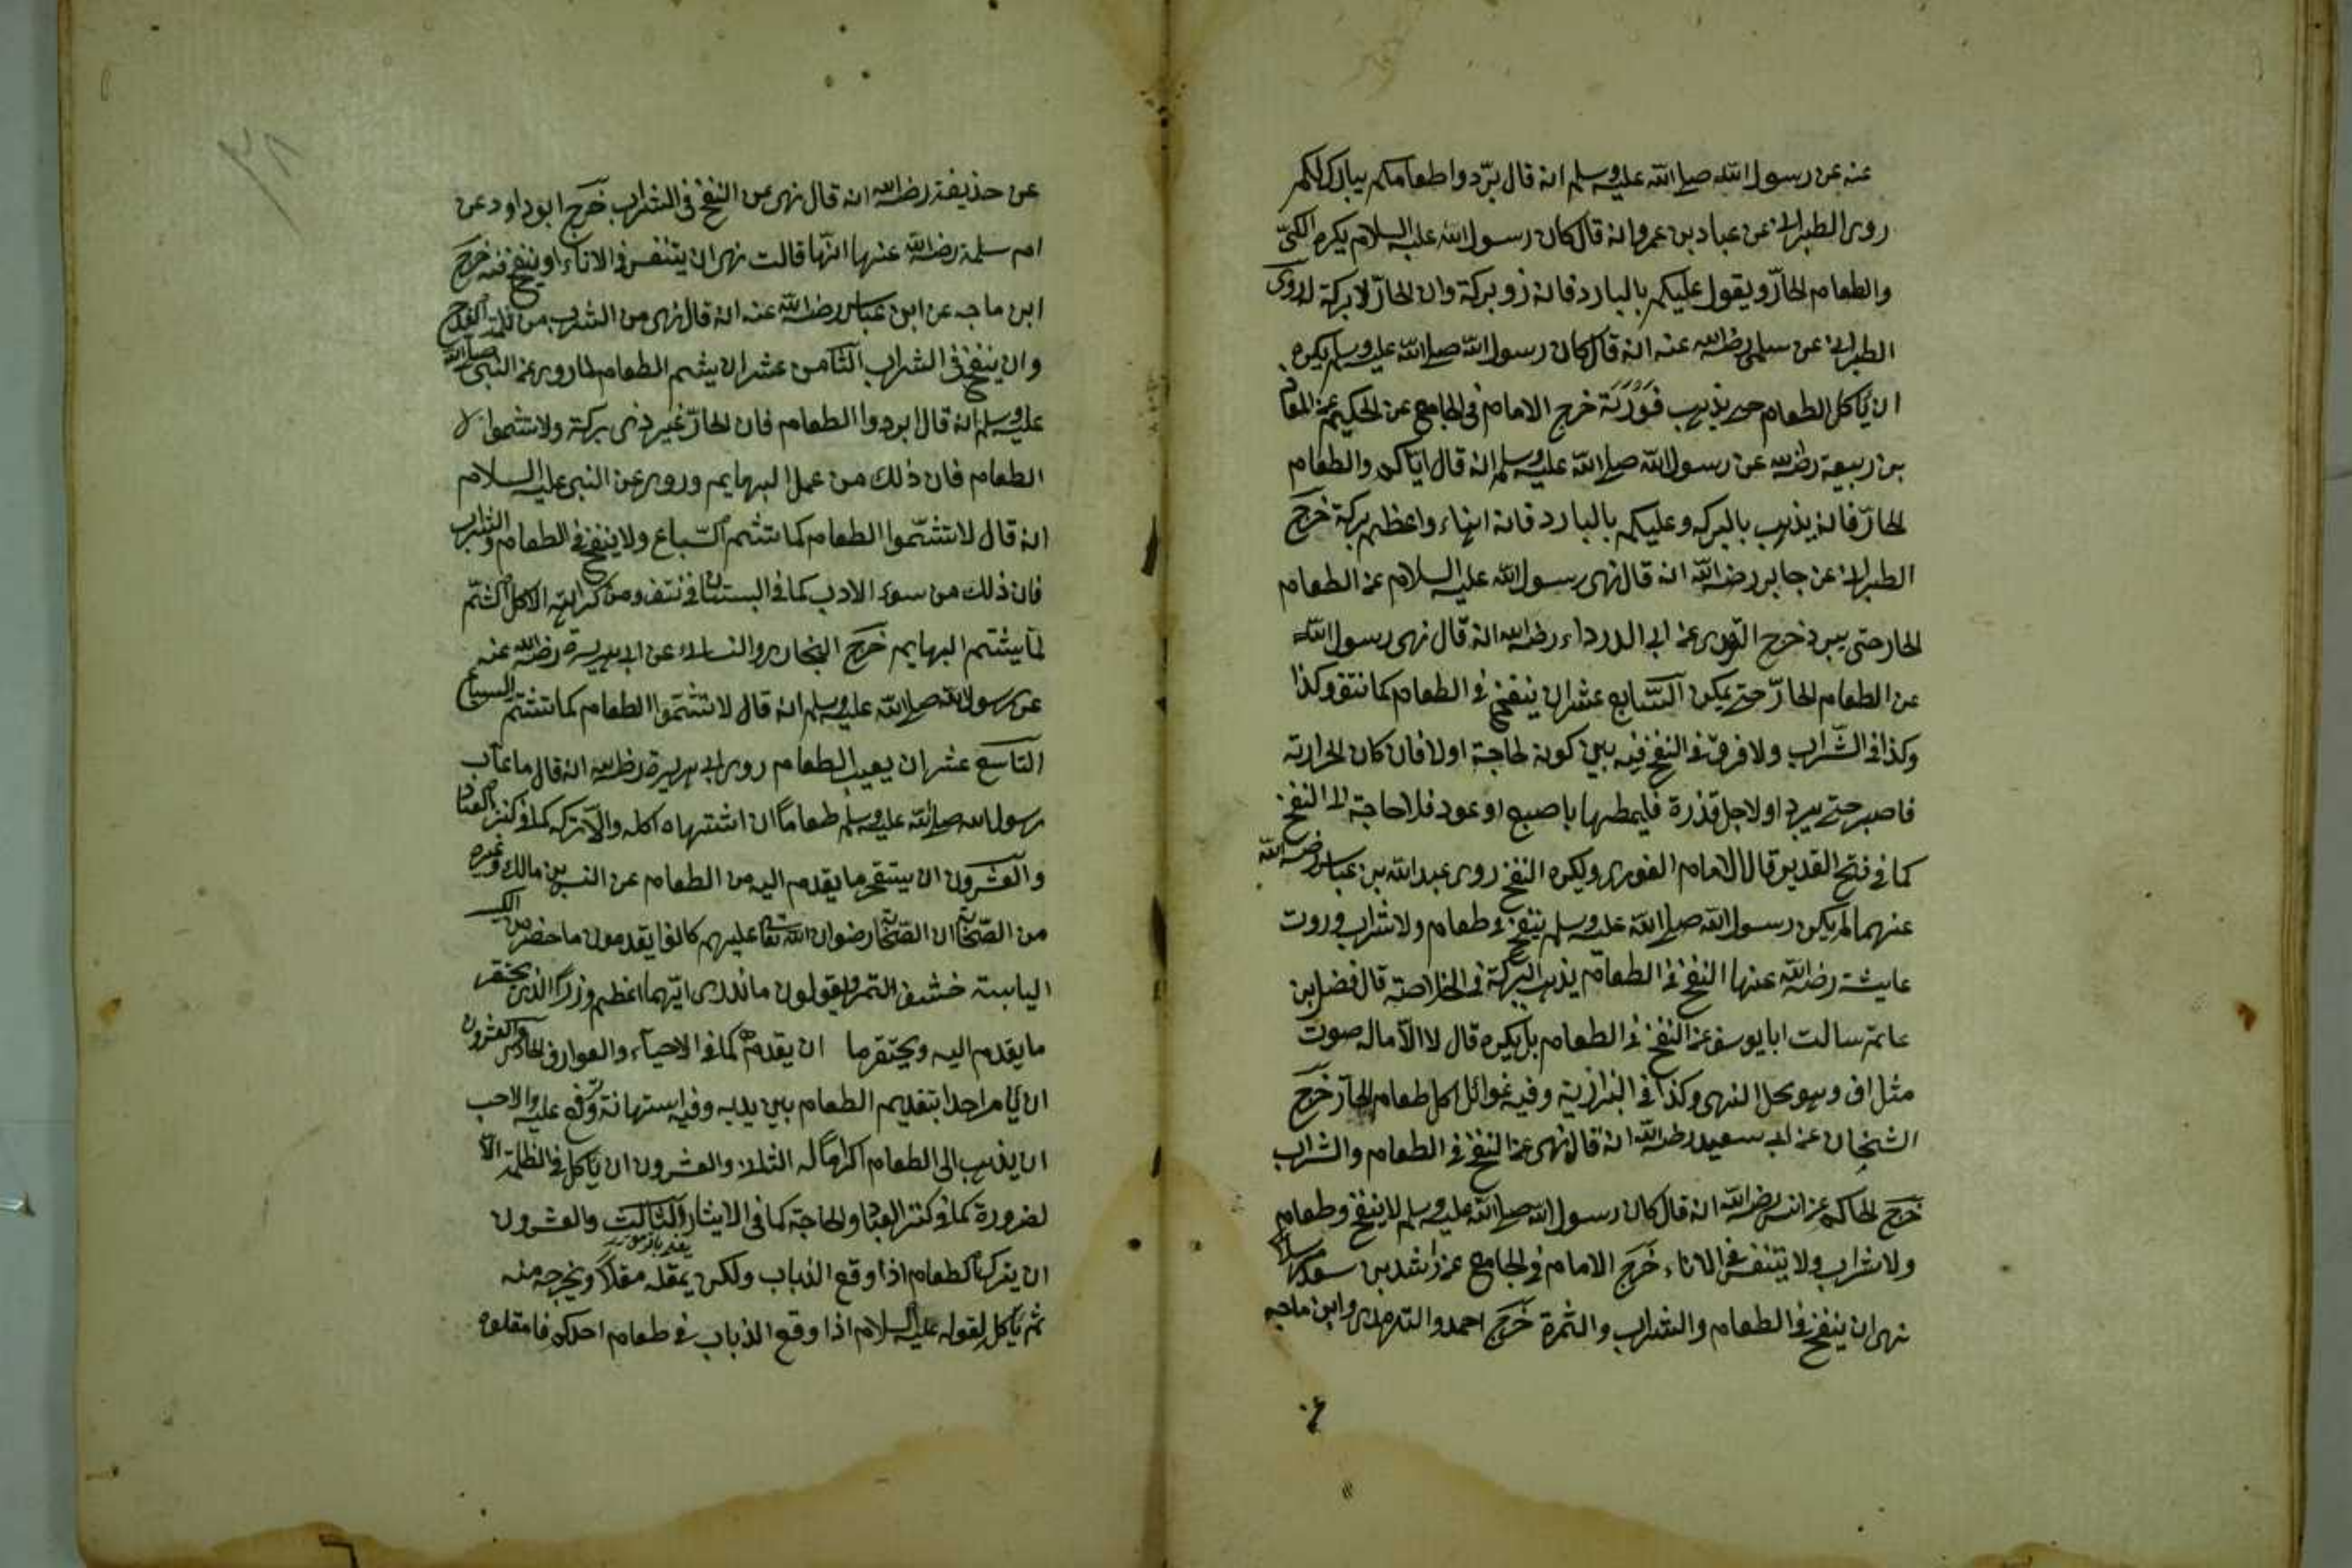 عنه عن رسول الله صلى الله عليه وسلم انه قال برّدوا طعامكم يبارك لكم
روى الطبرانى عن عباد بن عمرو انه قال كان رسول الله عليه السلام يكره الكىّ
والطعام الحارّ ويقول عليكم بالبارد فانه ذو بركة وان الحارّ لا بركة له روى
الطبرانى عن سلمى رضى الله عنه انه قال كان رسول الله صلى الله عليه وسلم يكره
ان يأكل الطعام حتى يذهب فورته خرج الامام فى الجامع عن الحكيم عن
بن ربيعة رضى الله عن رسول الله صلى الله عليه وسلم انه قال اياكم والطعام
الحارّ فانه يذهب بالبركه وعليكم بالبارد فانه اهناء واعظم بركة خرّج
الطبرانى عن جابر رضى الله انه قال نهى رسول الله عليه السلام عن الطعام
الحار حتى يبرد خرج عن ابى الدرداء رضى الله انه قال نهى رسول الله
عن الطعام الحارّ حتى يمكن السّابع عشر ان ينفخ فى الطعام كما وكذا
وكذا فى الشّراب ولا فرق فى النفخ فيه بين كونه لحاجة اولا فان كان لحرارته
فاصبر حتى يبرد او لاجل قذرة فليمطها باصبع او عود فلا حاجة الى النفخ
كما فى فتح القدير قال الامام ويكره النفخ روى عبد الله بن عباس رضى الله
عنهما لم يكن رسول الله صلى الله عليه وسلم ينفخ فى طعام ولا شراب وروت
عايشة رضى الله عنها النفخ فى الطعام يذهب البركة فى الخلاصة قال فضل بن
غانم سالت ابا يوسف عن النفخ فى الطعام هل يكره قال لا الّا ماله صوت
مثل اف وهو محل النهى وكذا فى البزازية وفيه غوائل اكل طعام الحارّ خرّج
الشيخان عن ابى سعيد رضى الله انه قال نهى عن النفخ فى الطعام والشراب
خرّج الحاكم عن انس رضى الله انه قال كان رسول الله صلى الله عليه وسلم لا ينفخ فى طعام
ولا شراب ولا يتنفس فى الاناء خرّج الامام فى الجامع عن راشد بن سعد مرسلا
نهى ان ينفخ فى الطعام والشراب والثمرة خرّج احمد والترمذى وابن ماجه
عن
٣٨
عن حذيفة رضى الله انه قال نهى عن النفخ فى الشراب خرّج ابو داود عن
ام سلمة رضى الله عنها انّها قالت نهى ان يتنفس فى الاناء او ينفخ فيه خرّج
ابن ماجه عن ابن عباس رضى الله عنه انه قال نهى من الشرب من ثلمة القدح
وان ينفخ فى الشراب الثامن عشر ان يشم الطعام لما روى عن النبى صلى الله
عليه وسلم انه قال ابردوا الطعام فان الحارّ غير ذى بركة ولا تشموا
الطعام فان ذلك من عمل البهايم وروى عن النبى عليه السلام
انه قال لا تشّموا الطعام كما تشم السّباع ولا ينفخ فى الطعام والشراب
فان ذلك من سوء الادب كما فى البستان ومن الاكل الشّم
كما يشم البهايم خرّج البخارى والنسائى عن ابى هريرة رضى الله عنه
عن رسول الله صلى الله عليه وسلم انه قال لا تشمّوا الطعام كما تشتم السباع
التاسع عشر ان يعيب الطعام روى ابى هريرة رضى الله انه قال ما عاب
رسول الله صلى الله عليه وسلم طعاماً ان اشتهاه اكله والّا تركه كما فى كنز العباد
والعشرون ان يستحقر ما يقدم اليه من الطعام عن انس بن مالك وغيره
من الصّحابة ان الصّحابة رضوان الله تعالى عليهم كانوا يقدمون ما حضر من الكسر
اليابسة خشف التمر ويقولون ما ندرى ايّهما اعظم وزرا الذى يحتقر
ما يقدم اليه ويحتقر ما ان يقدمه كما فى الاحياء والعوارف الحادى والعشرون
ان يأمر احدا بتقديم الطعام بين يديه وفيه استهانة عليه والاحب
ان يذهب الى الطعام اكراماً له الثانى والعشرون ان يأكل فى الظلمة الّا
لضرورة كما فى كنز العباد والحاجة كما فى الايثار والثالث والعشرون
ان يترك الطعام اذا وقع الذباب ولكن يمقله مقلاً ويخرجه منه
ثم يأكل لقوله عليه السلام اذا وقع الذباب فى طعام احدكم فامقلوه